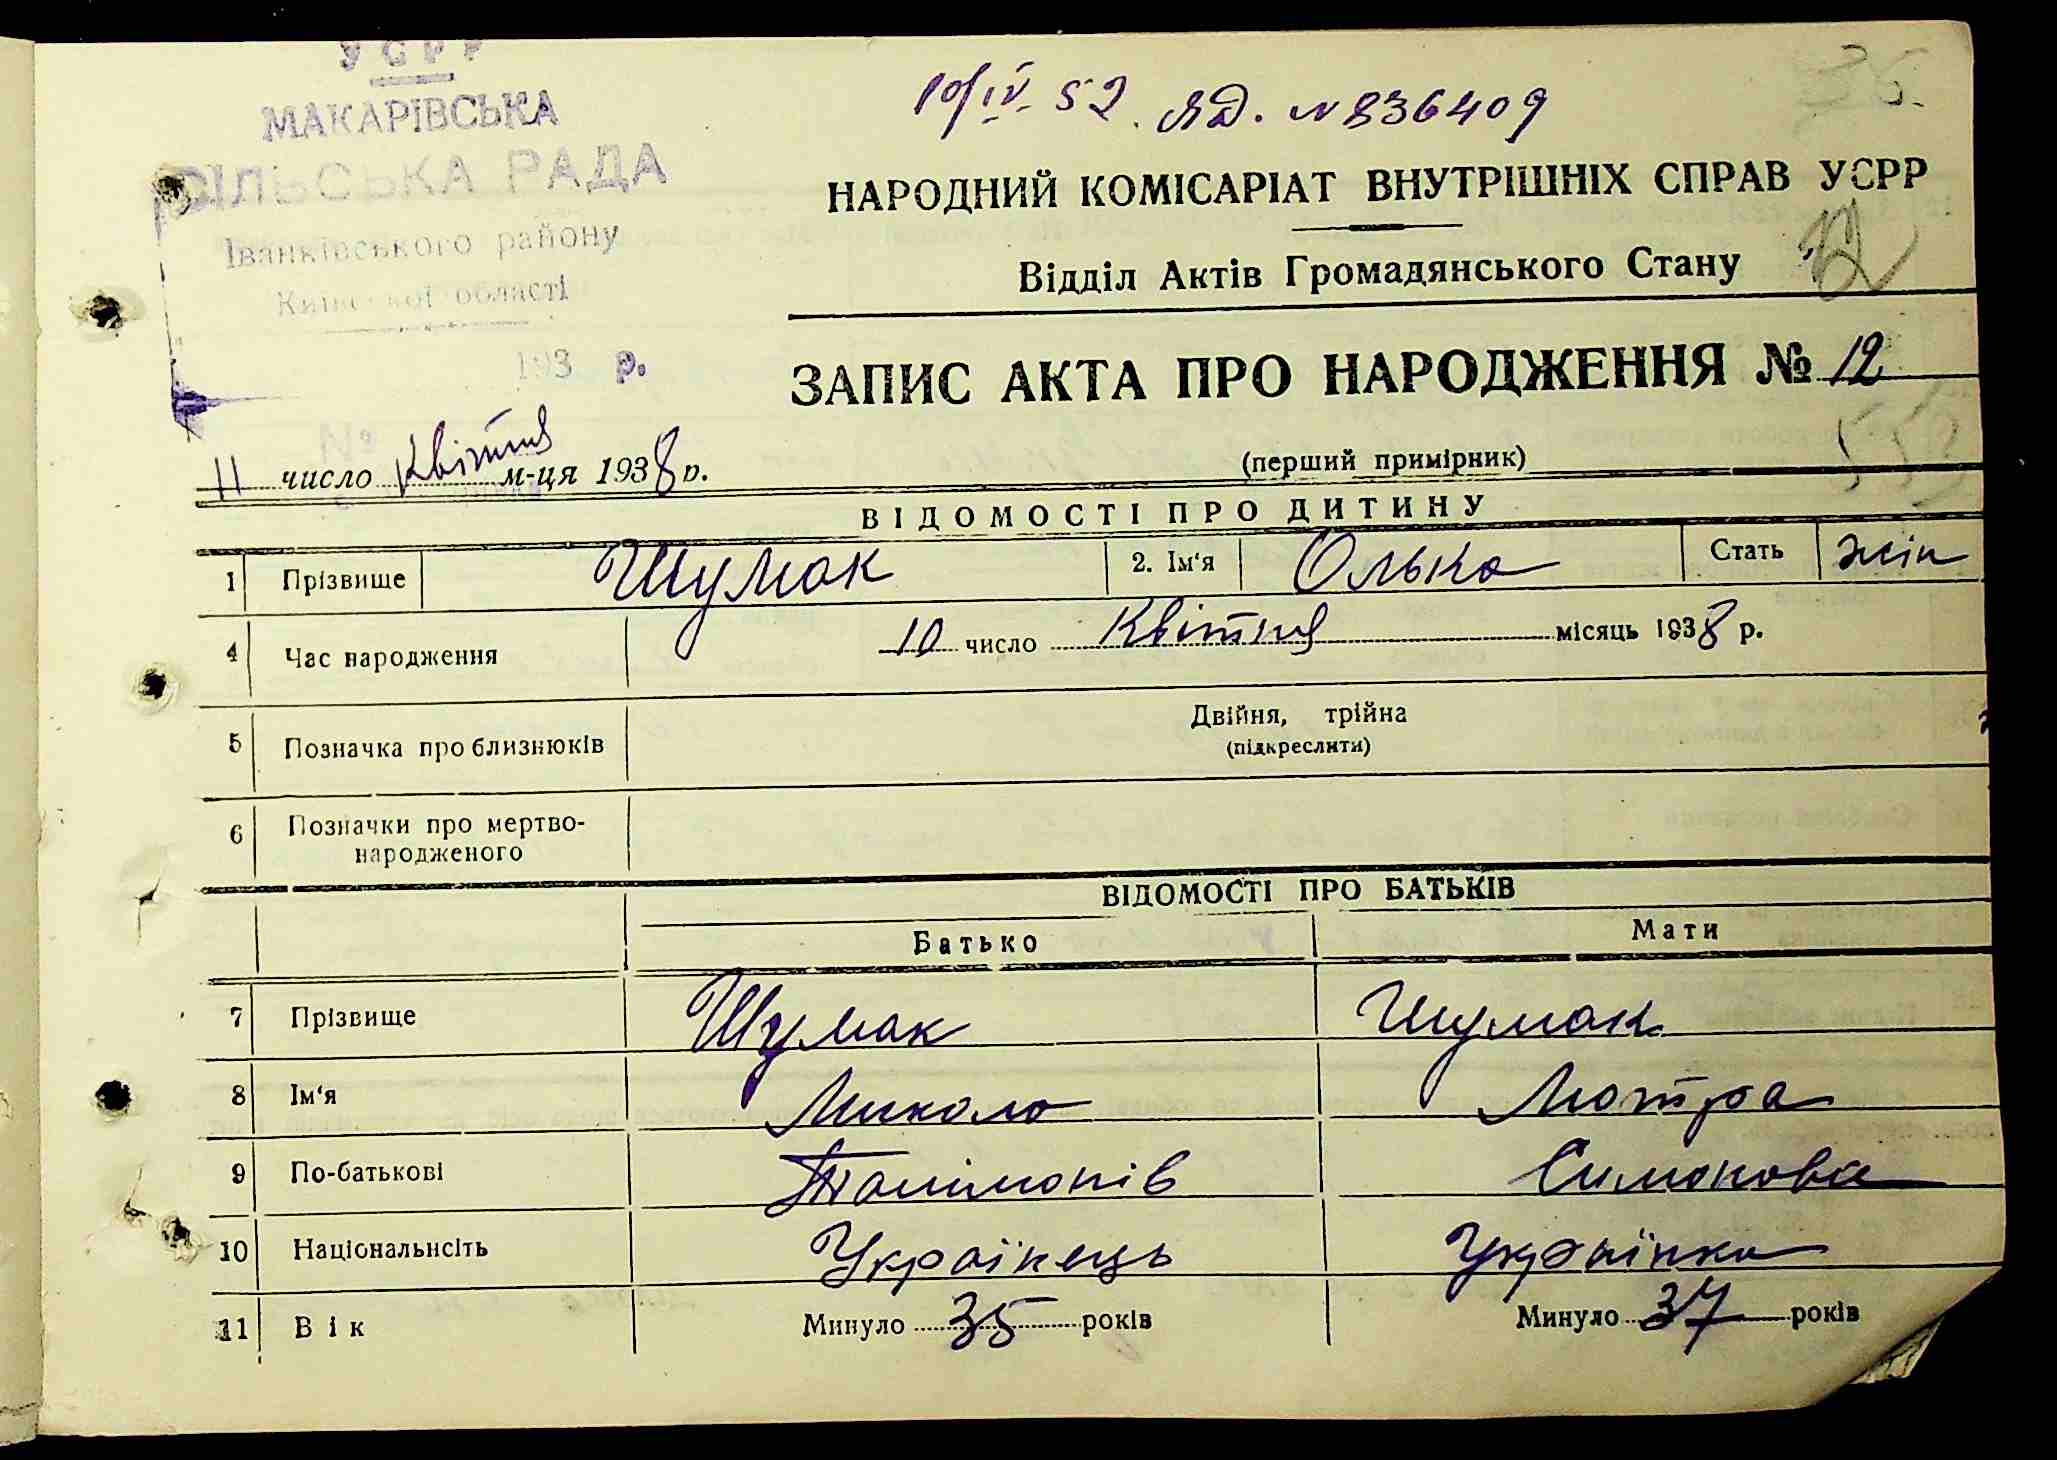 УСРР
МАКАРІВСЬКА
СІЛЬСЬКА РАДА
Іванківського району
Київської області
193 р.
10/IV. 52. ЯД. № 836409
НАРОДНИЙ КОМІСАРІАТ ВНУТРІШНІХ СПРАВ УСРР
Відділ Актів Громадянського Стану
12
ЗАПИС АКТА ПРО НАРОДЖЕННЯ № 12
11 число Квітня м-ця 1938 р.
(перший примірник)
ВІДОМОСТІ ПРО ДИТИНУ
1 Прізвище Шумак 2. Ім'я Олька Стать жін
4 Час народження 10 число Квітня місяць 1938 р.
5 Позначка про близнюків Двійня, трійна
(підкреслити)
6 Позначки про мертво-
народженого
ВІДОМОСТІ ПРО БАТЬКІВ
Батько Мати
7 Прізвище Шумак Шумак
8 Ім'я Микола Мотра
9 По-батькові Симонова
10 Національнсіть Українець Українка
11 Вік Минуло 35 років Минуло 37 років